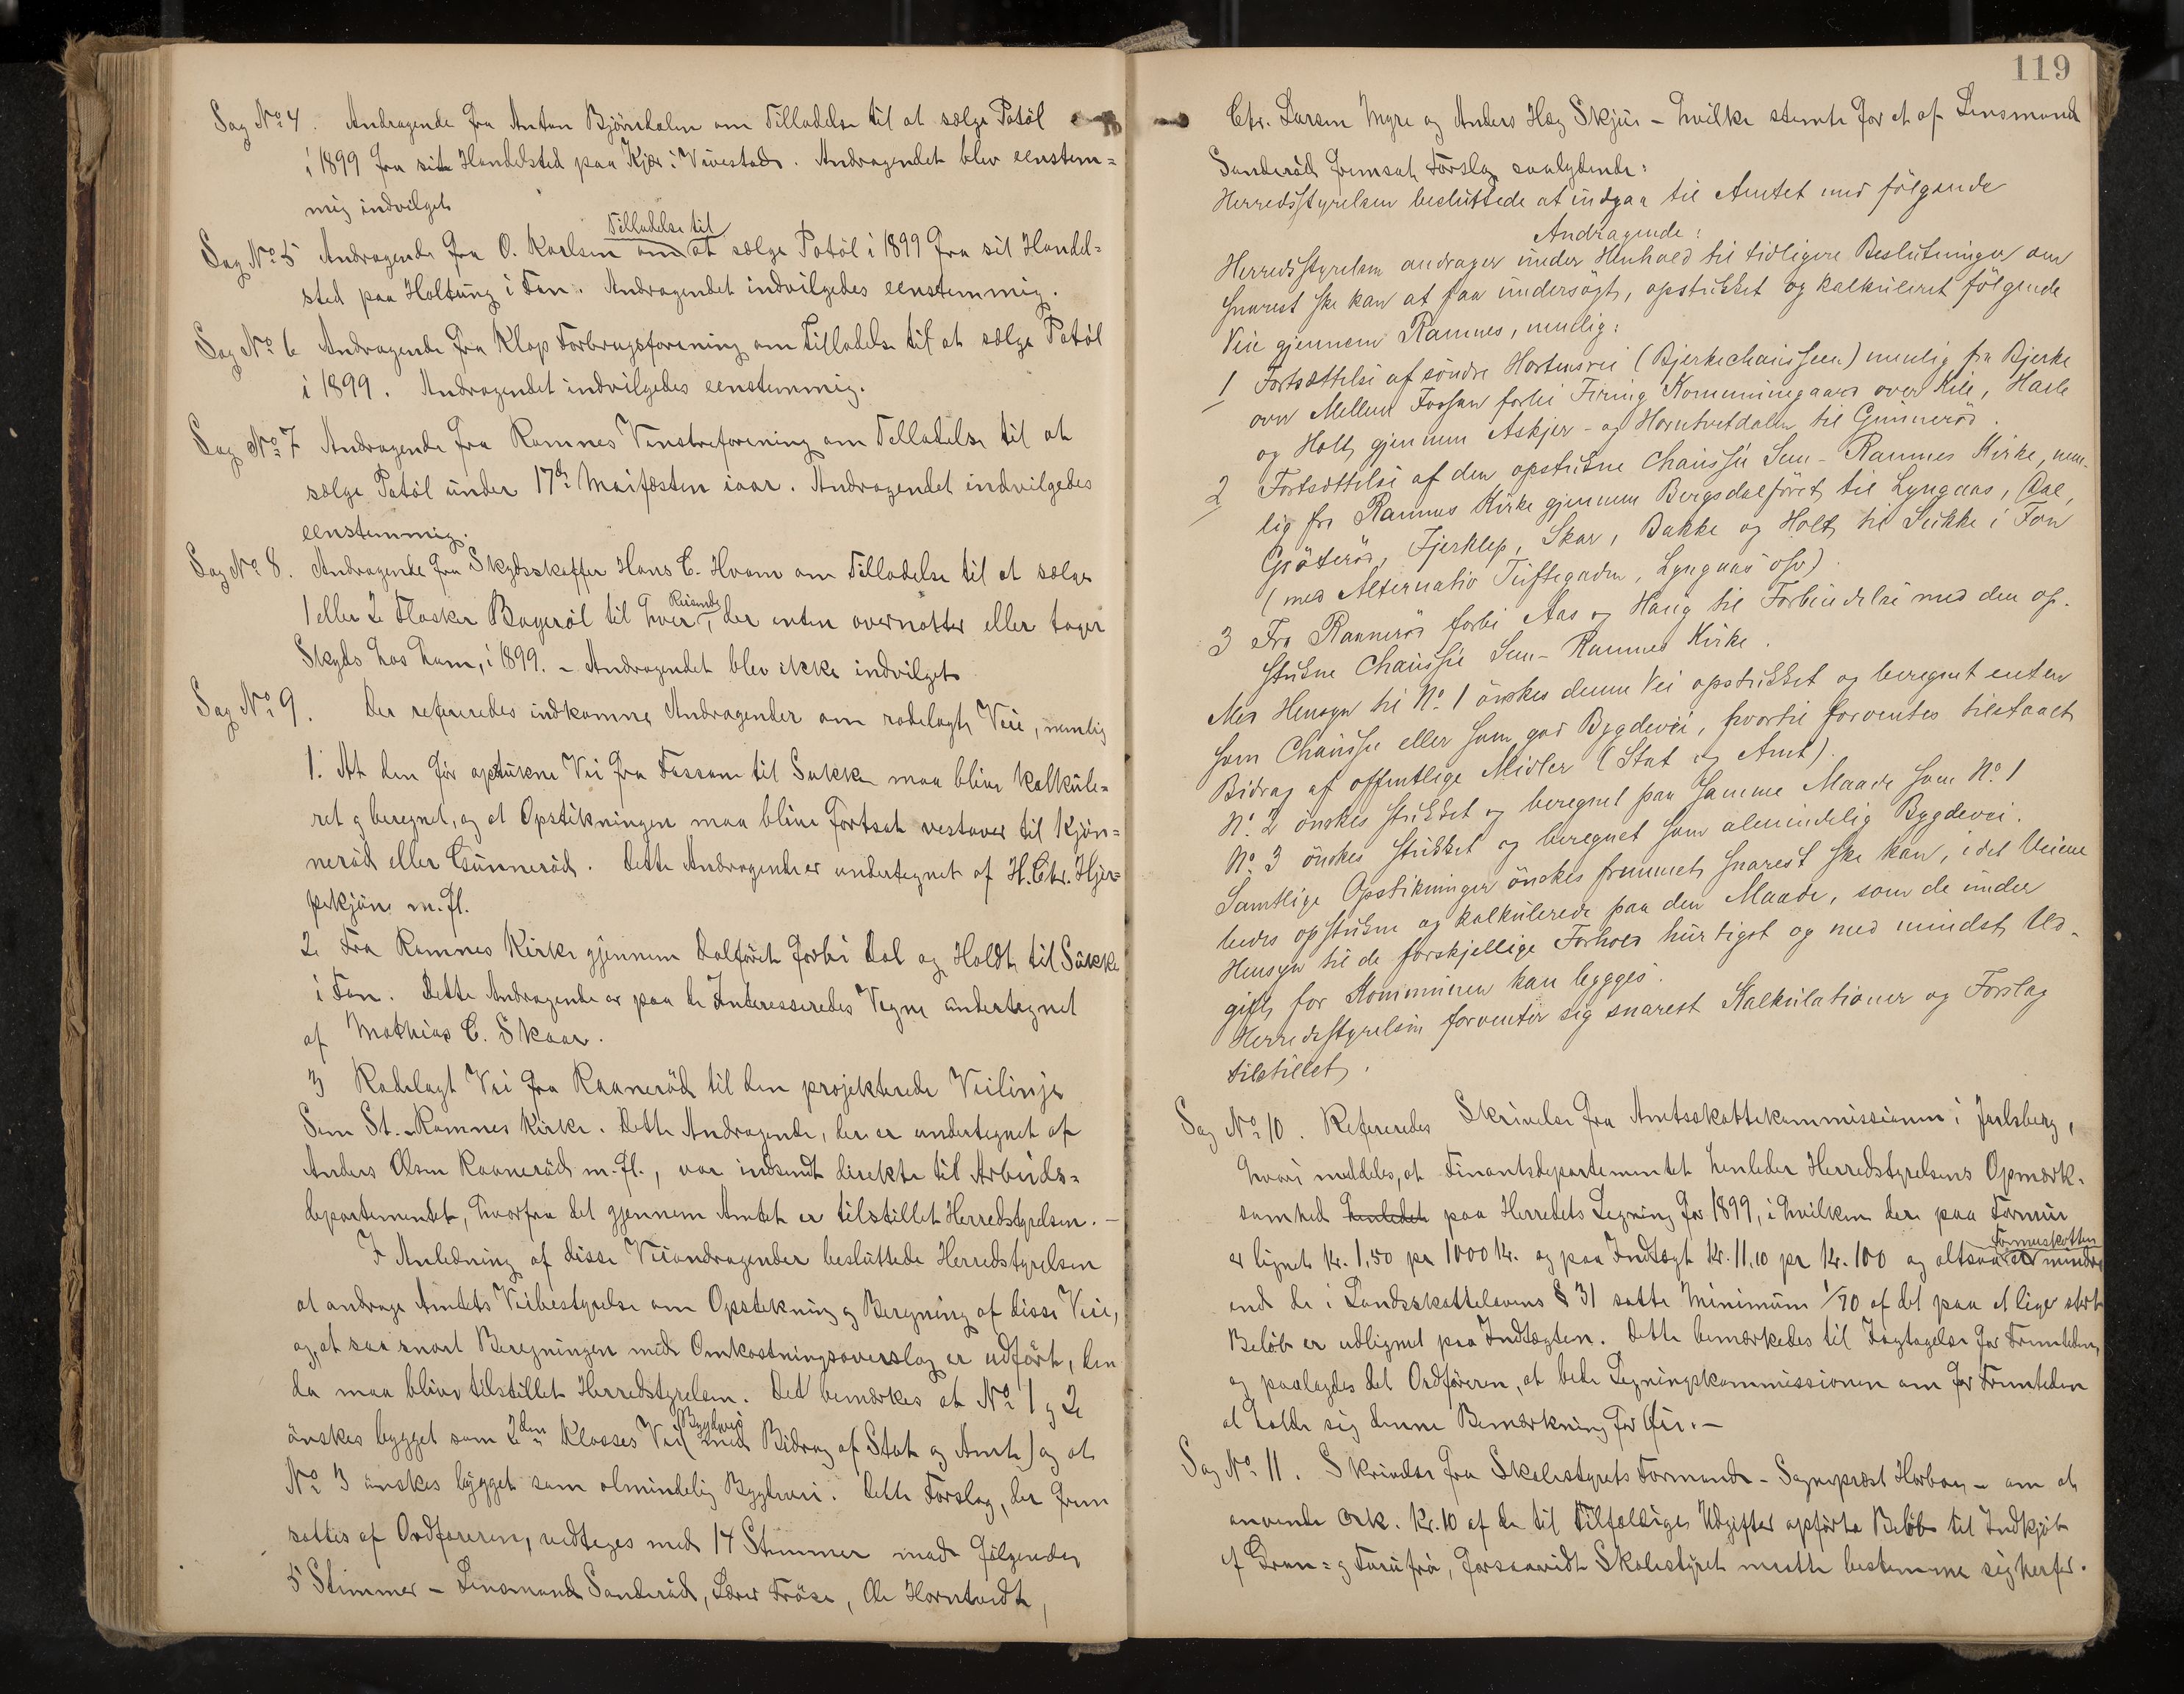 Sag No 4. Andragende fra Anton Björnholm om Tilladelse til at sælge Potöl
i 1899 fra sit Handelsted paa Kjær i Vivestad. Andragendet blev eenstem=
mig indvilget
Tilladelse til
Sag No 5 Andragende fra O. Karlsen om at sælge Potöl i 1899 fra sit Handel=
sted paa Holtung i Fon. Andragendet indvilgedes eenstemmig.
Sag No 6 Andragende fra Klop Forbrugsforening om Tilladelse til at sælge Potöl
i 1899. Andragendet indvilgedes eenstemmig.
Sag No 7 Andragende fra Ramnes Venstreforening om Tilladelse til at
sælge Potöl under 17de Maifesten iaar. Andragendet indvilgedes
eenstemmig.
Sag No 8. Andragende fra Skydsskaffer Hans C. Hvam om Tilladelse til at sælge
Reisende
1 eller 2 Flasker Bayeröl til hver, der enten overnatter eller tager
Skyds hos ham, i 1899. – Andragendet blev ikke indvilget
Sag No 9. Der refereredes indkomne Andragender om rodelagte Veie, nemlig
1. At den för opstukne Vei fra Fossan til Sukke maa blive kalkule=
ret og beregnet, og at Opstikningen maa blive fortsat vestover til Kjön=
neröd eller Gunneröd. Dette Andragende er undertegnet af H. Chr. Hjer=
pekjön m.fl.
2 Fra Ramnes Kirke gjennem Dalföret forbi Dal og Holdt til Sukke
i Fon. Dette Andragende er paa de Interesseredes Vegne undertegnet
af Mathias C. Skaar.
3 Rodelagt Vei fra Raaneröd til den projekterede Veilinje
Sem St. – Ramnes Kirke. Dette Andragende, der er undertegnet af
Anders Olsen Raaneröd m.fl., var indsendt direkte til Arbeids=
departementet, hvorfra det gjennem Amtet er tilstillet Herredstyrelsen. –
I Anledning af disse Veiandragender besluttede Herredstyrelsen
at andrage Amtets Veibestyrelse om Opstikning og Beregning af disse Veie,
og, at saa snart Beregningen med Omkostningsoverslag er udfört, den
da maa blive tilstillet Herredstyrelsen. Det bemærkes at No 1 og 2
Bygdevei
önskes bygget som 2den Klasses Vei (med Bidrag af Stat og Amt) og at
No 3 önskes bygget som almindelig Bygdevei. Dette Forslag, der frem
sattes af Ordföreren, vedtoges med 14 Stemmer mod fölgende
5 Stemmer – Lensmand Sanderöd, Lærer Fröse, Ole Horntvedt,
119
Chr. Larsen Myre og Anders Hsg Skjeie – hvilke stemte for et af Lensmand
Sanderöd fremsat Forslag saalydende:
Herredsstyrelsen besluttede at indgaa til Amtet med fölgende
Andragende:
Herredsstyrelsen andrager under Henhold til tidligere Beslutninger om
snarest ske kan at faa undersögt, opstukket og kalkuleret fölgende
Veie gjennem Ramnes, nemlig:
1 Fortsættelse af söndre Hortensvei (Bjerkechausseen) nemlig fra Bjerke
over Mellem Fossan forbi Firing Kommunegaard over Kile, Hasle
og Holt, gjennem Askjer- og Horntvetdalen til Gunneröd.
2 Fortsættelse af den opstukne Chaussée Sem – Ramnes Kirke, nem-
lig fra Ramnes Kirke gjennem Bergsdalföret til Lyngaas, Dal,
Gjöteröd, Fjerklep, Skar, Bakke og Holt til Sukke i Fon
(med Alternativ Tuftegaden, Lyngaas osv).
3 Fra Raaneröd forbi Aas og Haug til Forbindelse med den op-
stukne Chaussée Sem – Ramnes Kirke.
Med Hensyn til No. 1 önskes denne Vei opstukket og beregnet enten
som Chaussée eller som god Bygdevei, hvortil forventes tilstaaet
Bidrag af offentlige Midler (Stat og Amt).
No. 2 önskes stukket og beregnet paa samme Maade som No. 1
No. 3 önskes stukket og beregnet som almindelig Bygdevei.
Samtlige Opstikninger önskes fremmet snarest ske kan, idet Veiene
bedes opstukne og kalkulerede paa den Maade, som de under
Hensyn til de forskjellige Forhold hurtigst og med mindst Ud-
gift for Kommunen kan bygges.
Herredsstyrelsen forventer sig snarest Kalkulationer og Forslag
tilstillet.
Sag No 10. Refereredes Skrivelse fra Amtsskattekommissionen i Jarlsberg,
hvori meddeles, at Finantsdepartementet henleder Herredstyrelsens Opmærk-
somhed henledet paa Herredets Ligning for 1899, i hvilken der paa Formue
Formueskatten
er lignet Kr. 1,50 pr 1000 Kr. og paa Indtægt Kr. 11,10 pr Kr. 100 og altsaa er mindre
end de i Landsskattelovens § 31 satte Minimum 1/70 af det paa et lige stort
Belöb er udlignet paa Indtægten. Dette bemærkedes til Iagttagelse for Fremtiden,
og paalagdes det Ordföreren, at bede Ligningskommissionen om for Fremtiden
at holde sig denne Bemærkning for Öie. –
Sag No 11. Skrivelse fra Skolestyrets Formand – Sogneprest Horboy – om at
anvende ca. Kr. 10 af de til Tilfældige Udgifter opförte Belöb til Indkjöb
af Gran= og Furufrö, forsaavidt Skolestyret maatte bestemme sig herfor.